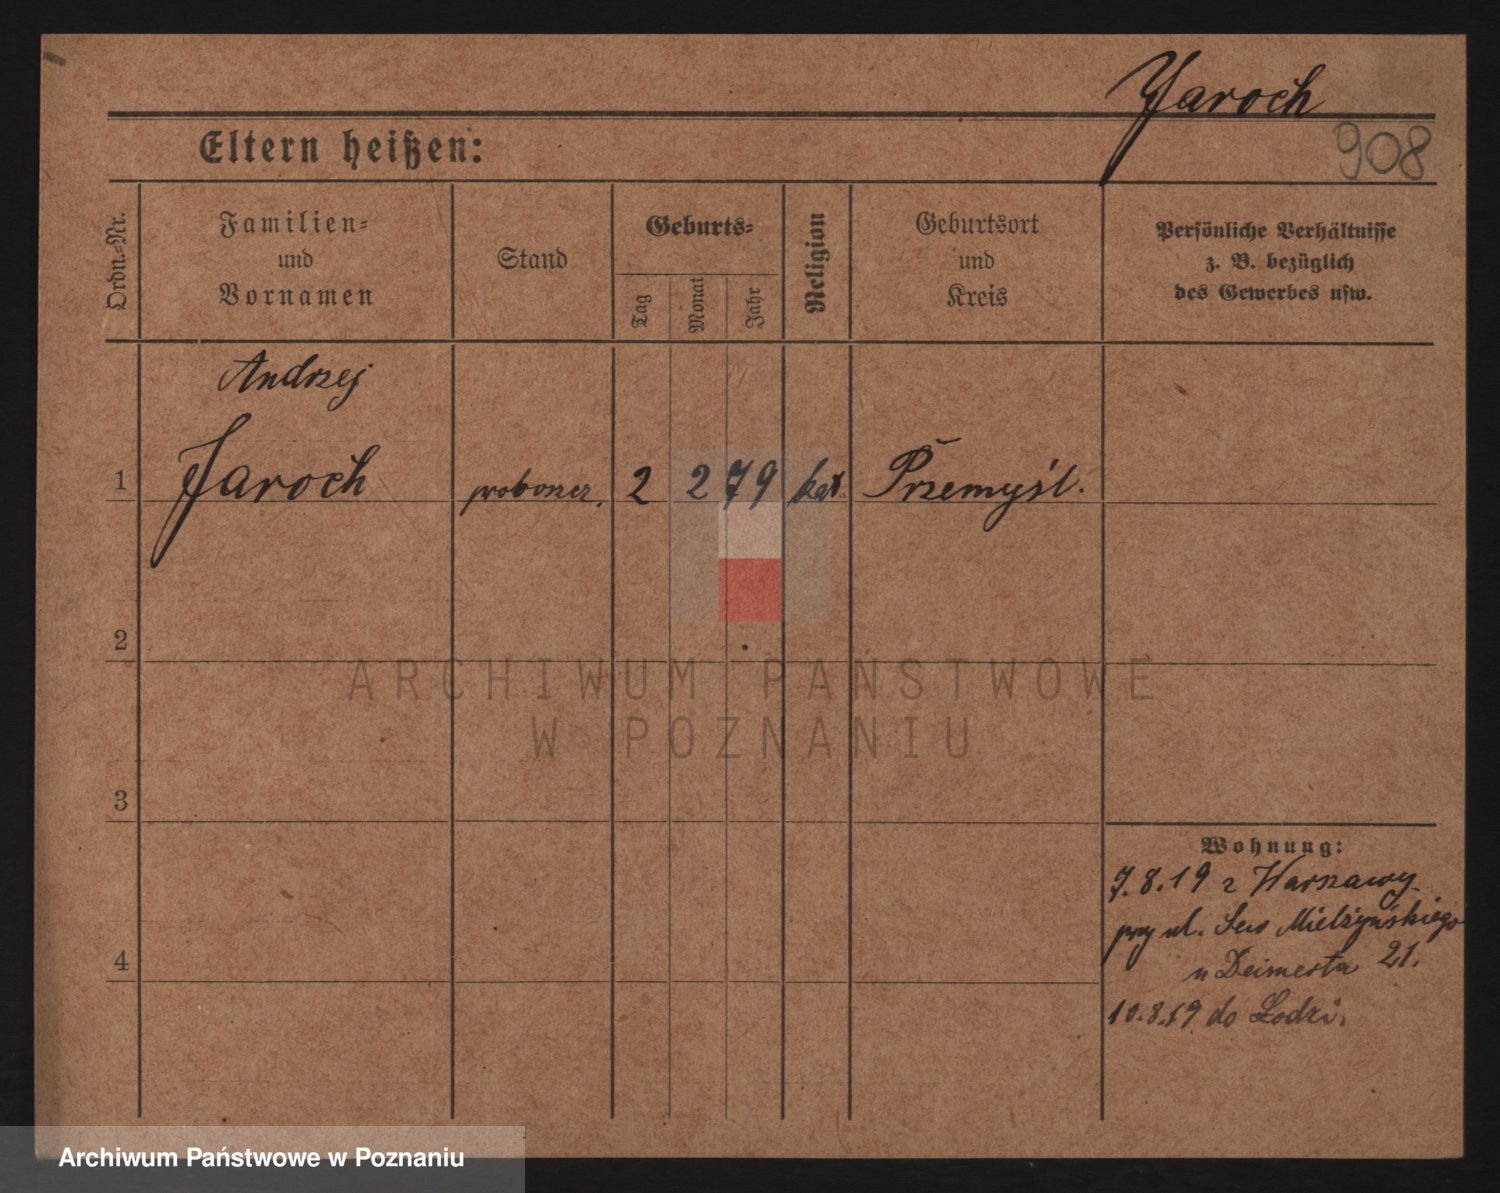 Jaroch
908
Eltern heißen:
Ordn.-Nr.
Familien-
und
Vornamen
Stand
Geburts-
Tag
Monat
Jahr
Religion
Geburtsort
und
Kreis
Persönliche Verhältnisse
z. B. bezüglich
des Gewerbes usw.
Andrzej
1 Jaroch proboszcz. 2 2 79 kat. Przemyśl.
2
3
4
Wohnung:
7.8.19 z Warszawy
przy ul. Sew Mielżyńskiego
u Deimerta 21.
10.8.19 do Łodzi.
ARCHIWUM PAŃSTWOWE
W POZNANIU
Archiwum Państwowe w Poznaniu